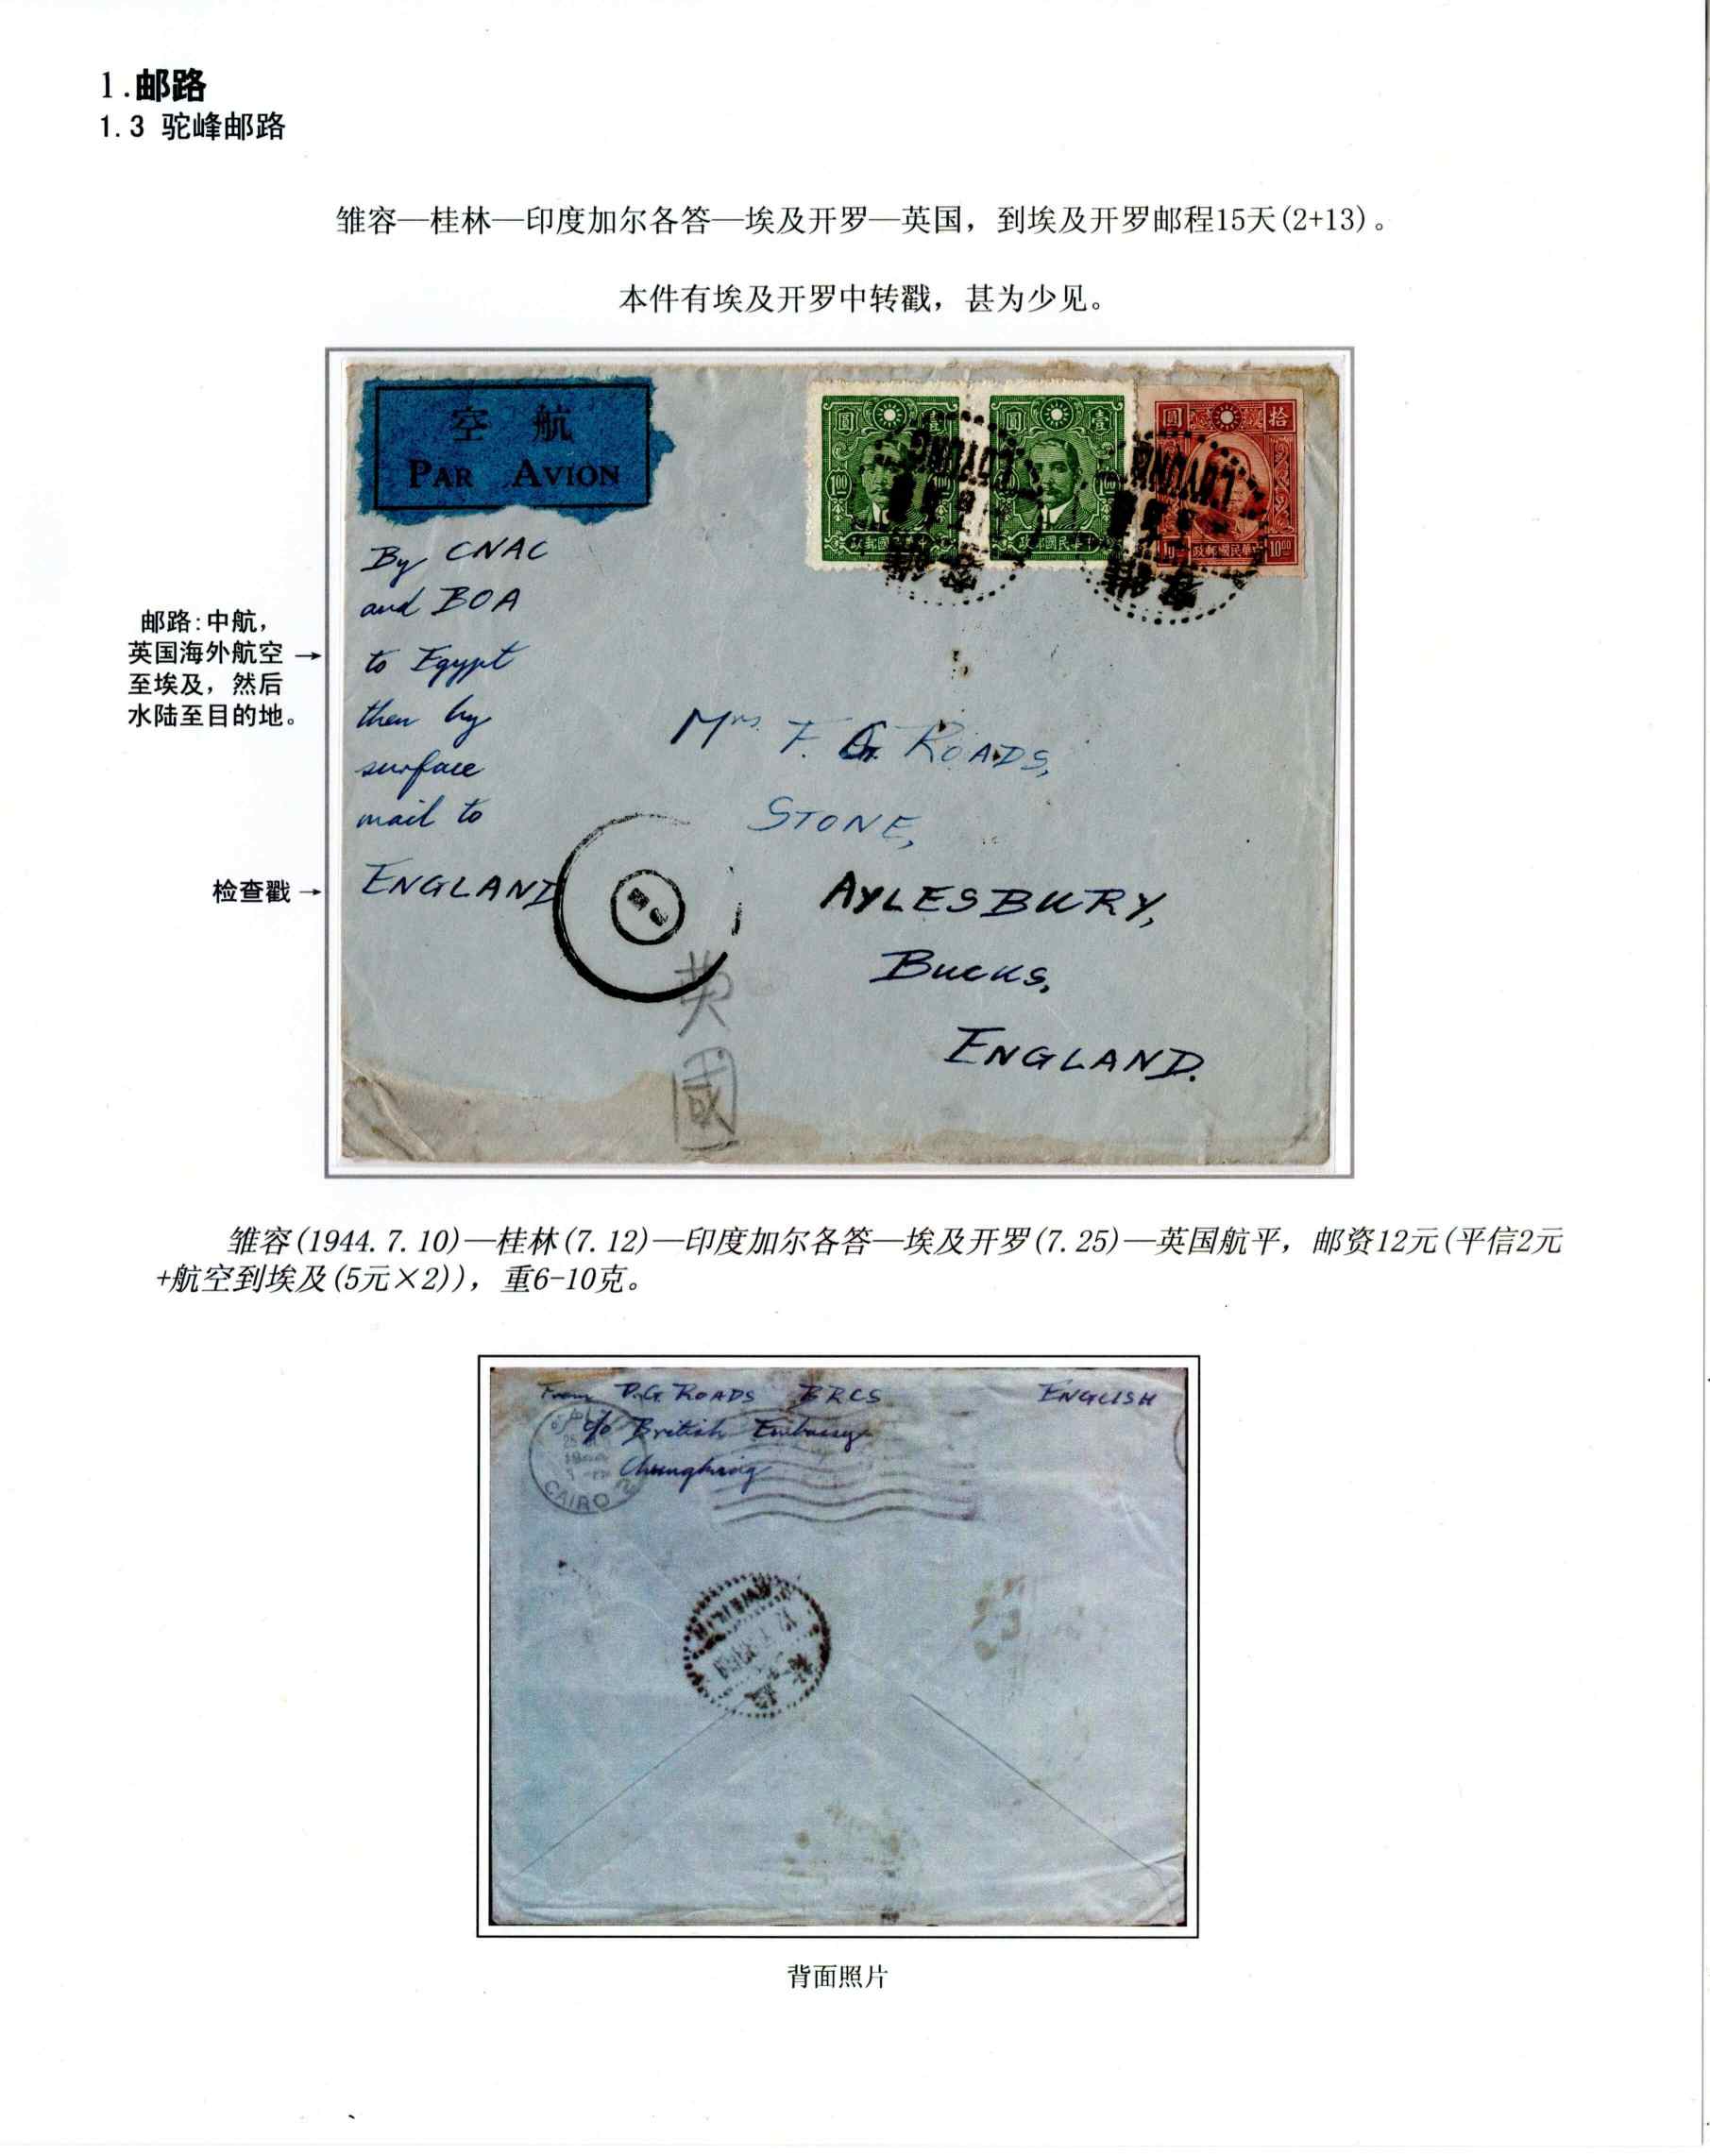 1.邮路
1.3 驼峰邮路
雒容—桂林—印度加尔各答—埃及开罗—英国，到埃及开罗邮程15天(2+13)。
本件有埃及开罗中转戳，甚为少见。
空 航
PAR AVION
圓 壹
1.00
政郵國民華中
圓 壹
1.00
政郵國民華中
圓 拾
10.00
政郵國民華中
LOYUNG
LOYUNG
By CNAC
and BOA
to Egypt
then by
surface
mail to
ENGLAND
邮路：中航，
英国海外航空
至埃及，然后
水陆至目的地。
检查戳
Mrs. F. G. ROADS,
STONE,
AYLESBURY,
BUCKS,
ENGLAND.
英
國
雒容(1944.7.10)—桂林(7.12)—印度加尔各答—埃及开罗(7.25)—英国航平，邮资12元(平信2元
+航空到埃及(5元×2))，重6-10克。
From D.G. ROADS BRCS ENGLISH
c/o British Embassy
Chungking
CAIRO
背面照片